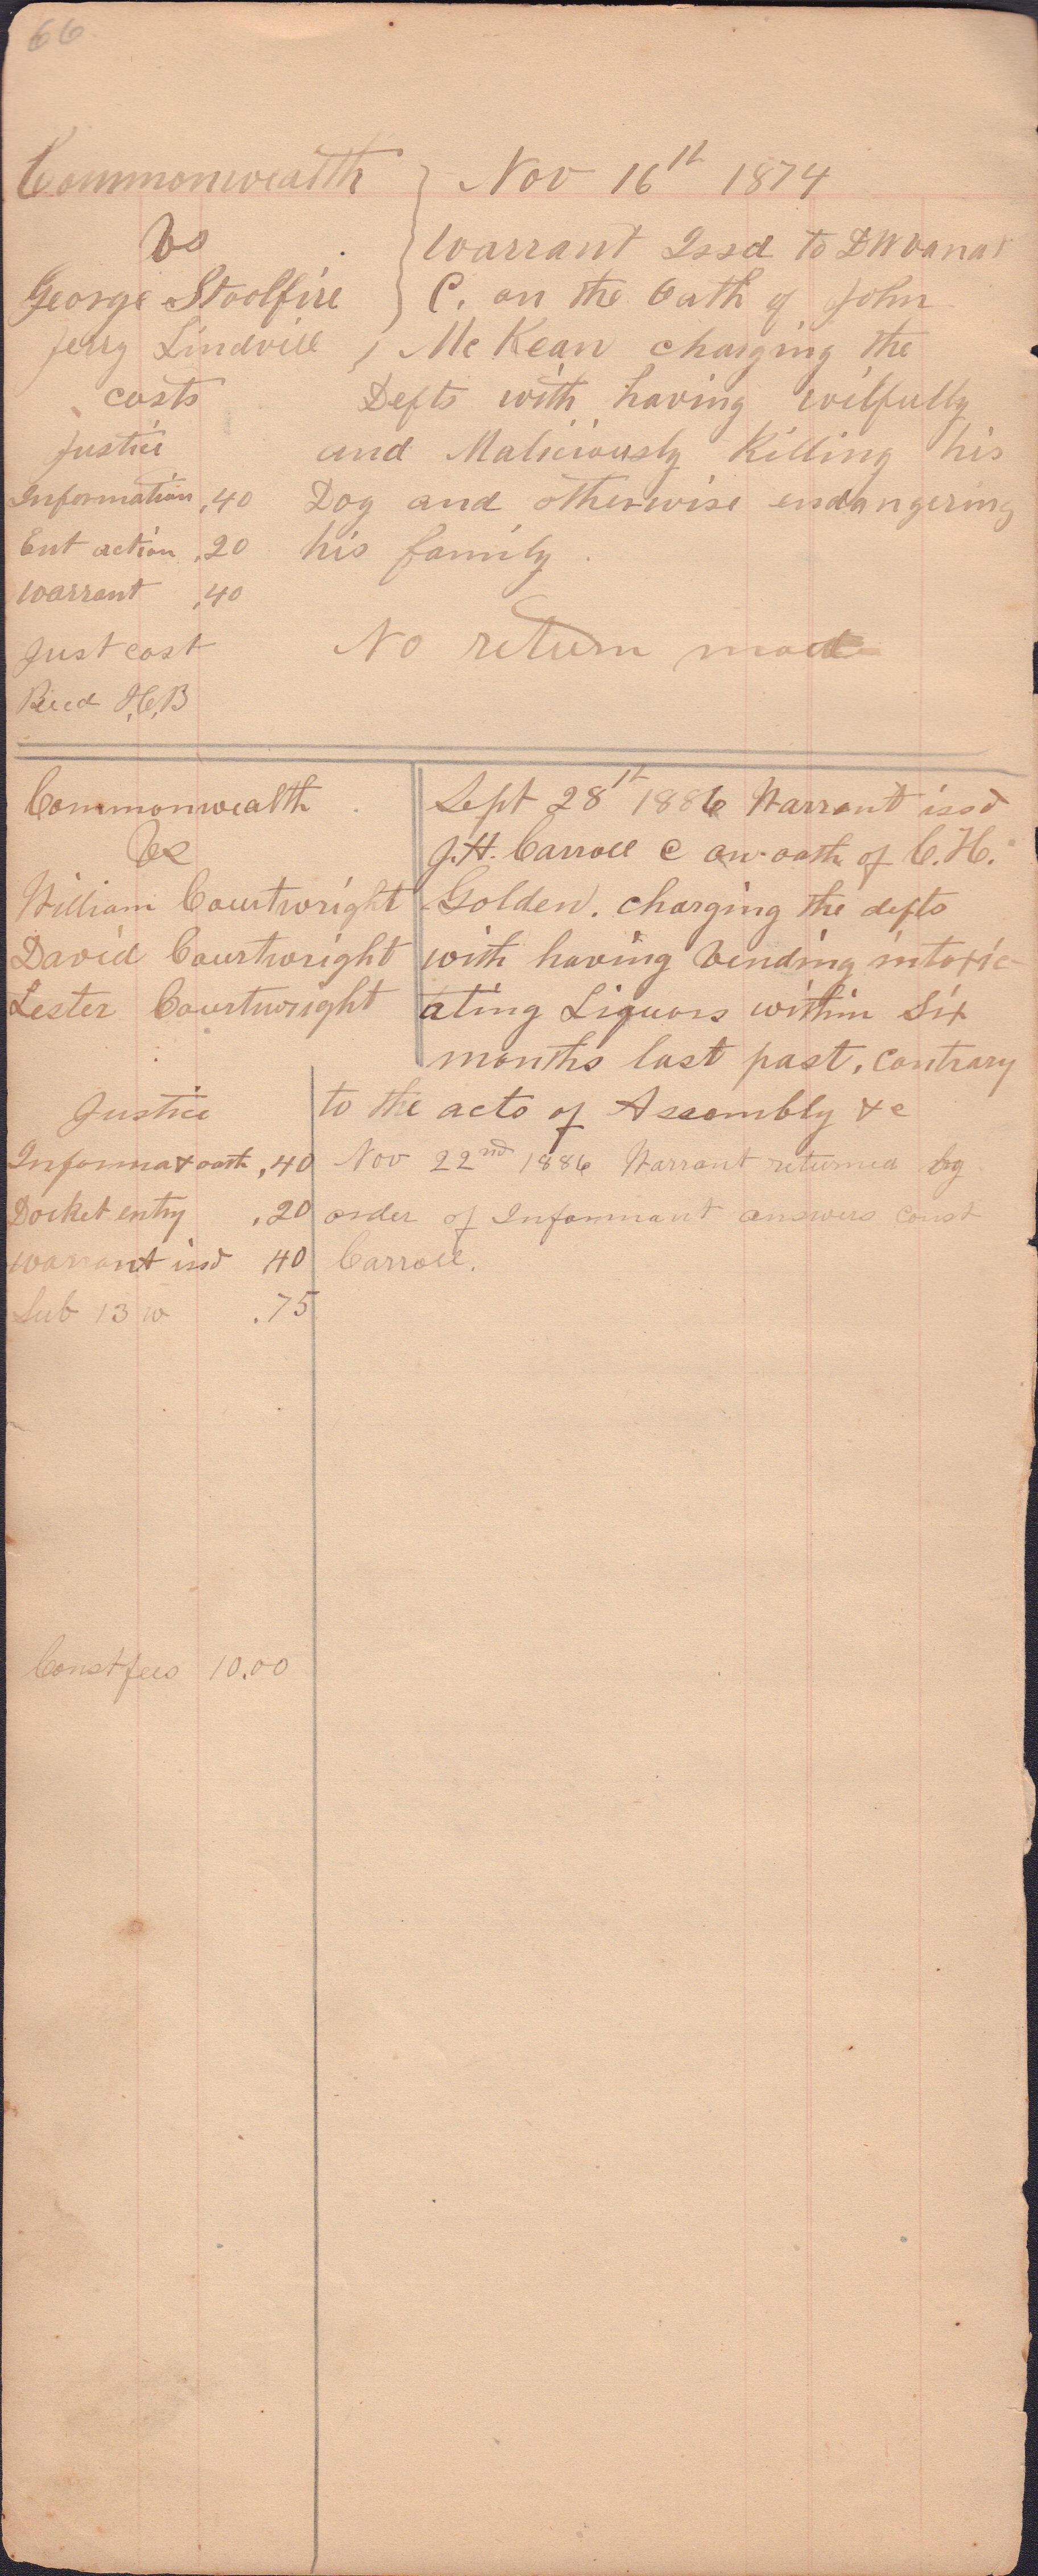 66
Commonwealth
vs
George Stoolfire
Jerry Lindvill
costs
Justice
Information .40
Ent action .20
Warrant .40
Just cost
Recd
Nov 16th 1874
Warrant Issd to
C. on the Oath of John
McKean charging the
Defts with having wilfully
and Maliciously Killing his
Dog and otherwise endangering
his family.
No return made
Commonwealth
Vs
William Courtwright
David Courtwright
Lester Courtwright
Sept 28th 1886 Warrant issd
J.H. Carroll C on oath of C.H.
Golden. charging the defts
with having Vending intoxic-
ating Liquors within Six
months last past, contrary
to the acts of Assembly &c
Nov 22nd 1886 Warrant returned by
order of Informant answers const
Carroll.
Justice
Informa & oath .40
Docket entry .20
Warrant issd 40
Sub 13 w .75
Const fees 10.00